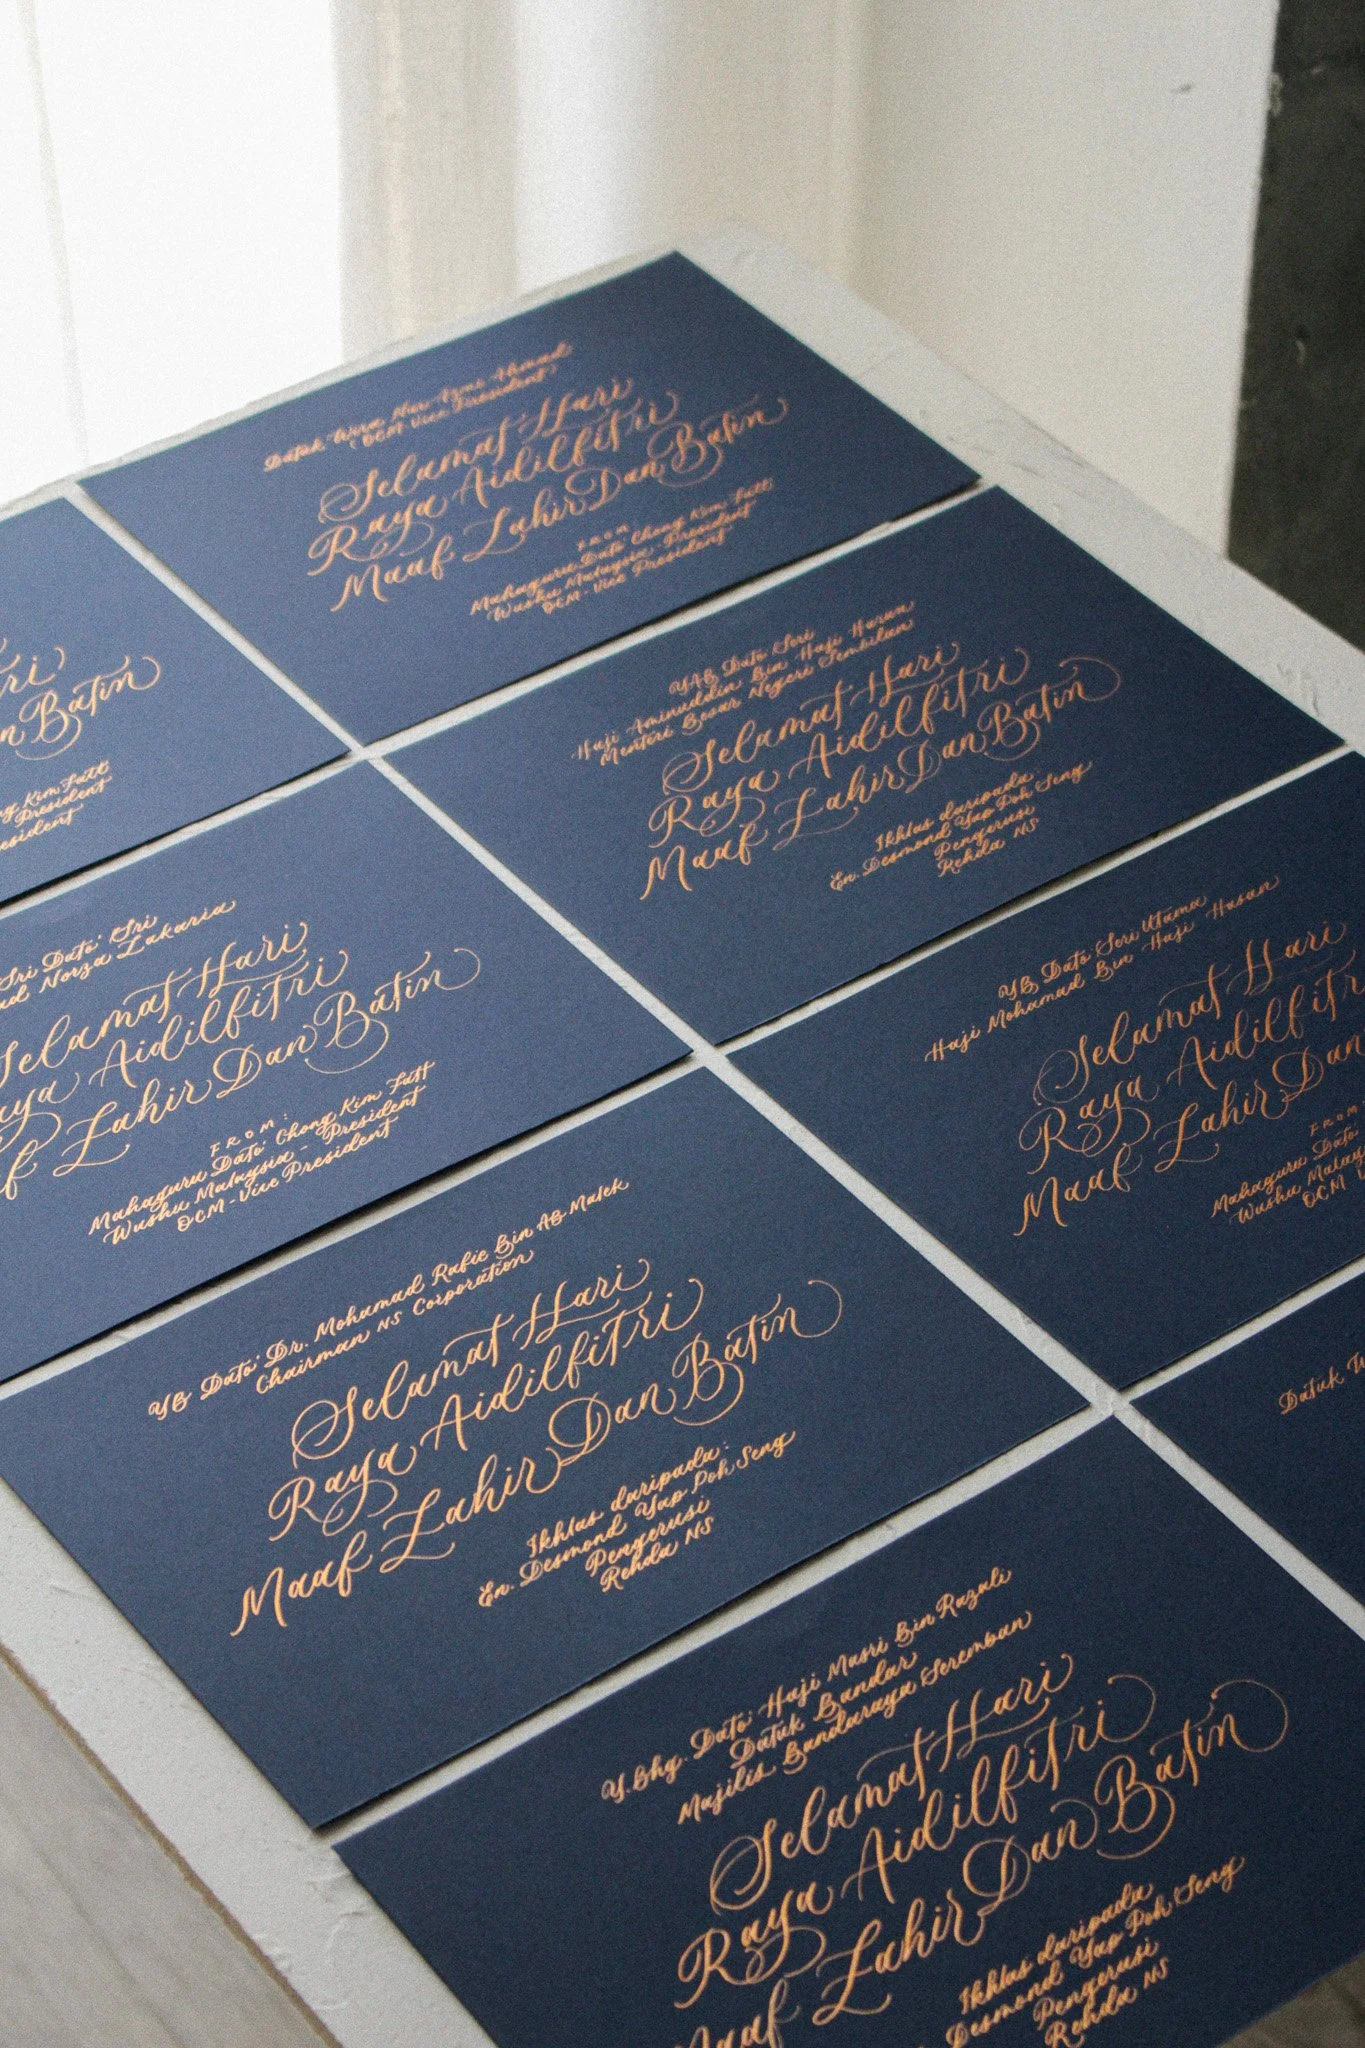 Datuk Wira Nur Azmi Ahmad
(OCM Vice President)
Selamat Hari
Raya Aidilfitri
Maaf Zahir Dan Batin
FROM
Mahaguru Dato' Chong Kim Fatt
Wushu Malaysia President
OCM-Vice President
ri
n Batin
ng Kim Fatt
President
esident
YAB Dato Seri
Haji Aminuddin Bin Haji Harun
Menteri Besar Negeri Sembilan
Selamat Hari
Raya Aidilfitri
Maaf Zahir Dan Batin
Ikhlas daripada:
En. Desmond Yap Poh Seng
Pengerusi
Rehda NS
Sri Dato' Sri
ad Norza Zakaria
Selamat Hari
aya Aidilfitri
f Zahir Dan Batin
FROM:
Mahaguru Dato' Chong Kim Fatt
Wushu Malaysia - President
OCM-Vice President
YB Dato Seri Utama
Haji Mohamad Bin Haji Hasan
Selamat Hari
Raya Aidilfitr
Maaf Zahir Dan
FROM
Mahaguru Dato'
Wushu Malay
OCM
YB Dato' Dr. Mohamad Rafie Bin AB Malek
Chairman NS Corporation
Selamat Hari
Raya Aidilfitri
Maaf Zahir Dan Batin
Ikhlas daripada:
En. Desmond Yap Poh Seng
Pengerusi
Rehda NS
Datuk W
Y.Bhg. Dato' Haji Masri Bin Razali
Datuk Bandar
Majilis Bandaraya Seremban
Selamat Hari
Raya Aidilfitri
Maaf Zahir Dan Batin
Ikhlas daripada
Desmond Yap Poh Seng
Pengerusi
Rehda NS